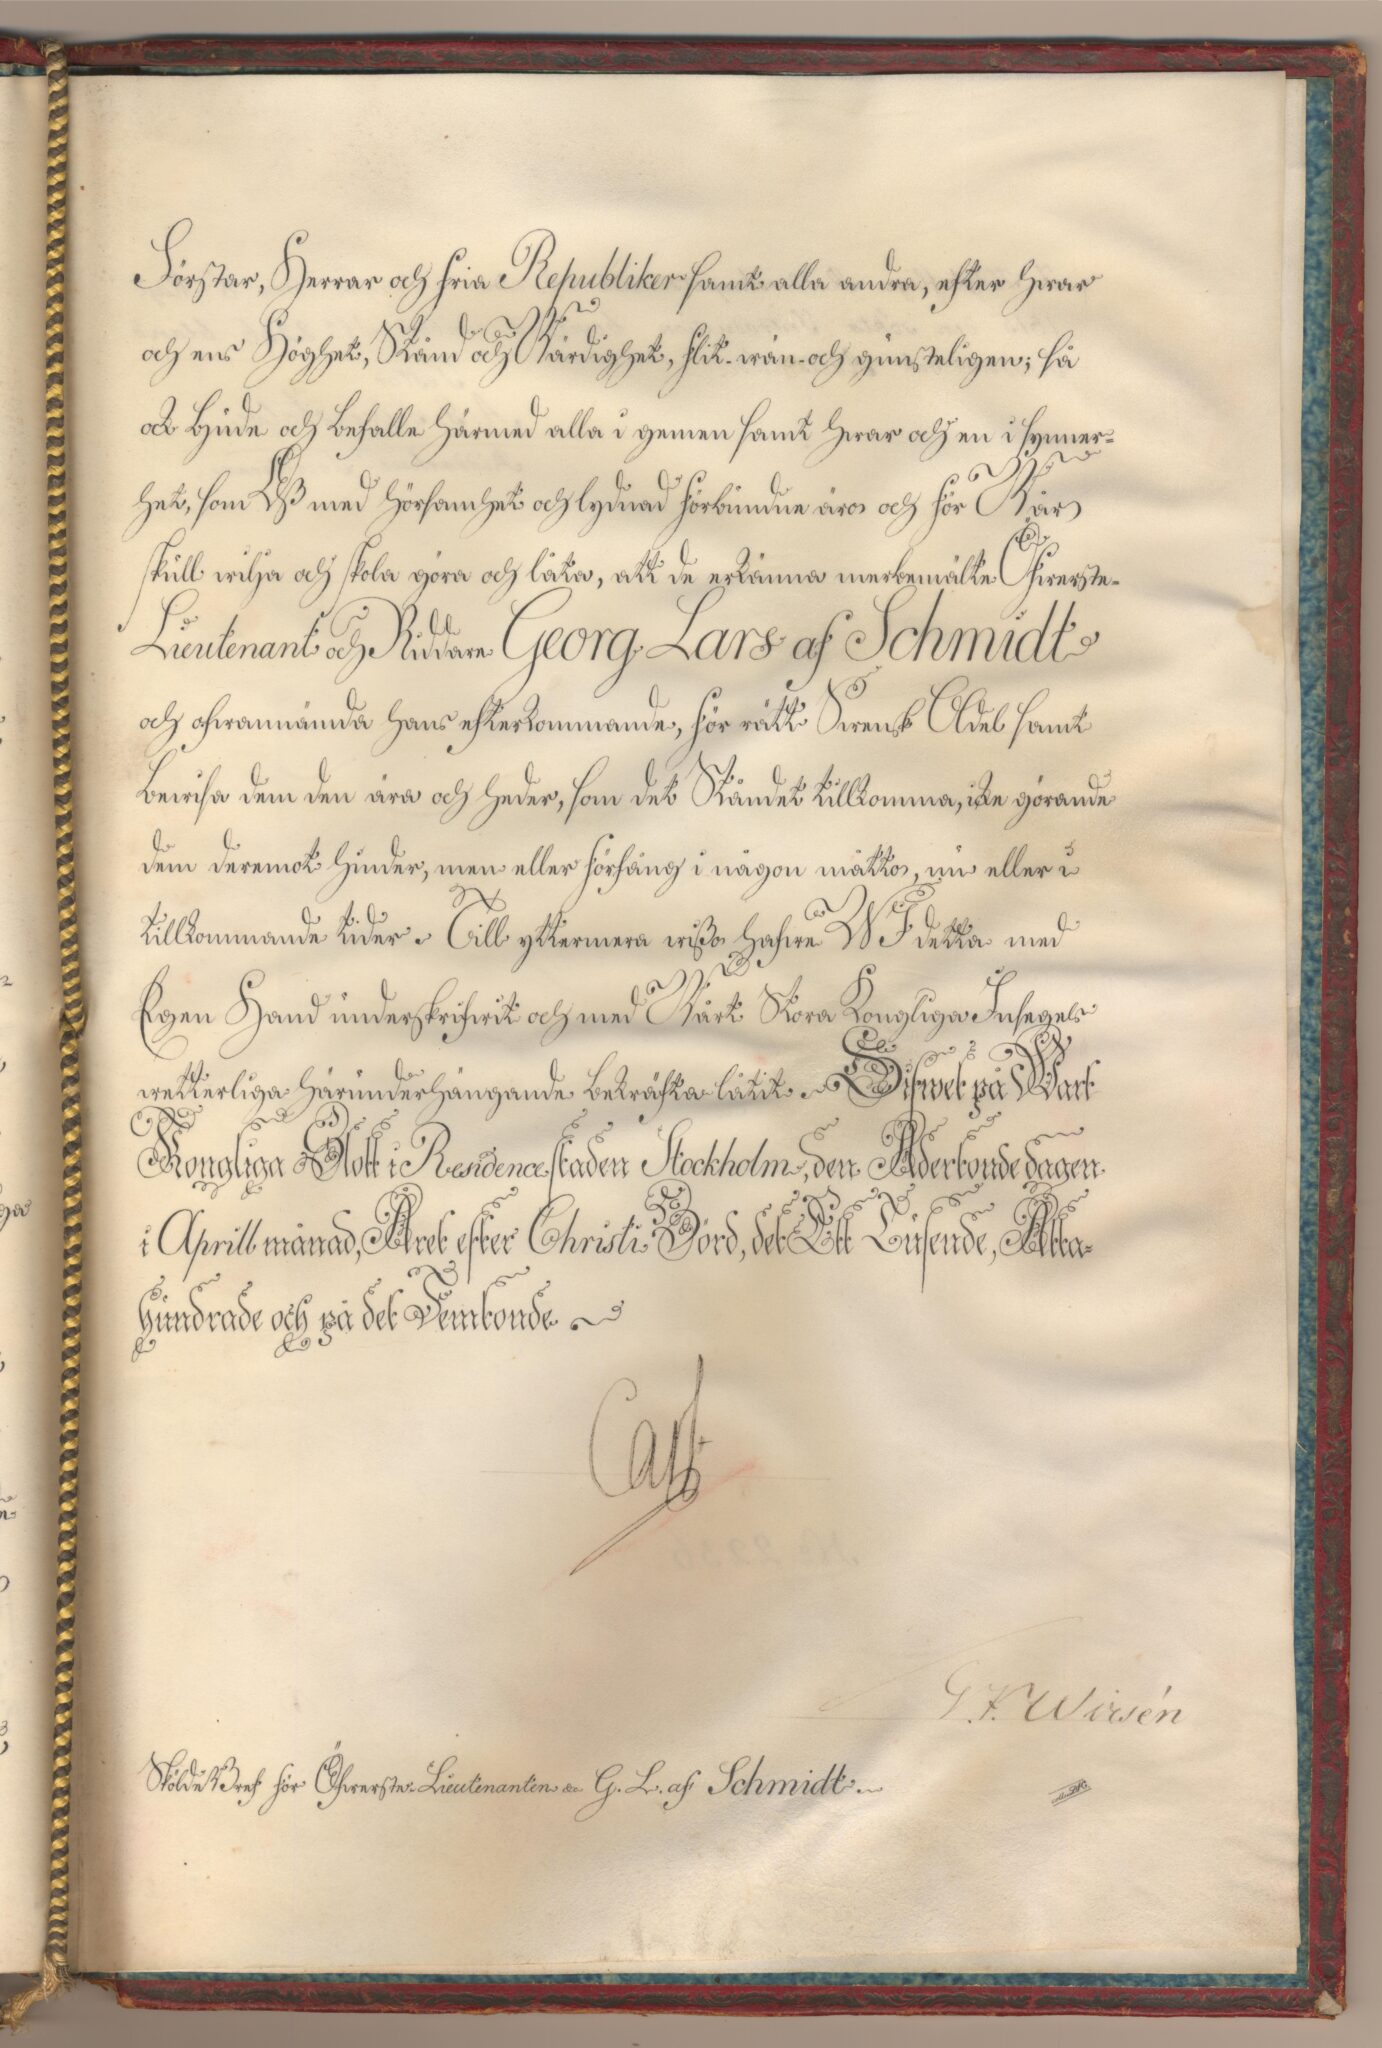 Förstar, Herrar och fria Republiker samt alla andra, efter hwar
och ens Höghet, Stånd och Wärdighet, flit- wän- och gunsteligen; så
ock Bjude och Befalle härmed alla i gemen samt hwar och en i synner-
het, som Oß med hörsamhet och lydnad förbundne äro och för Wår
skull wilja och skola göra och låta, att de erkänna merbemälte Öfwerste-
Lieutenant och Riddare Georg Lars af Schmidt
och ofwannämda hans efterkommande, för rätt Swensk Adel samt
Bewisa dem den ära och heder, som det Ståndet tillkomma, icke görande
dem deremot hinder, men eller förfång i någon måtto, nu eller i
tillkommande tider. Till yttermera wißo hafwe WJ detta med
Egen Hand underskrifwit och med Wårt Stora Kongliga Insegel
wetterliga härunderhängande bekräfta låtit. Gifwet på Wårt
Kongliga Slott i Residence staden Stockholm, den Adertonde dagen
i Aprill månad, Året efter Christi Börd, det Ett Tusende, Åtta-
hundrade och på det Femtonde
Carl
G. F. Wirsén
Skölde Bref för Öfwerste-Lieutenanten &c G. L. af Schmidt.